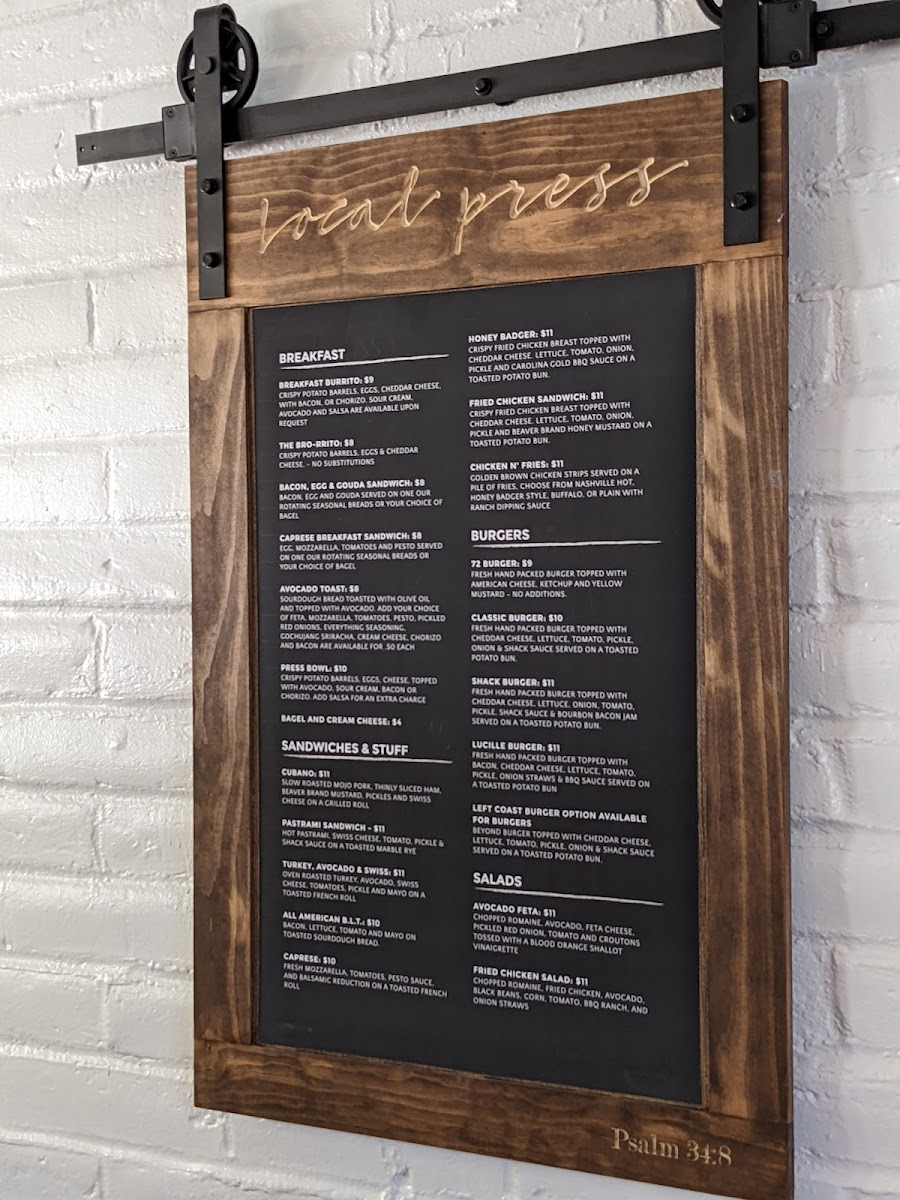 local press
BREAKFAST
BREAKFAST BURRITO: $9
CRISPY POTATO BARRELS, EGGS, CHEDDAR CHEESE,
WITH BACON, OR CHORIZO. SOUR CREAM,
AVOCADO AND SALSA ARE AVAILABLE UPON
REQUEST
THE BRO-RRITO: $8
CRISPY POTATO BARRELS, EGGS & CHEDDAR
CHEESE. – NO SUBSTITUTIONS
BACON, EGG & GOUDA SANDWICH: $8
BACON, EGG AND GOUDA SERVED ON ONE OUR
ROTATING SEASONAL BREADS OR YOUR CHOICE OF
BAGEL
CAPRESE BREAKFAST SANDWICH: $8
EGG, MOZZARELLA, TOMATOES AND PESTO SERVED
ON ONE OUR ROTATING SEASONAL BREADS OR
YOUR CHOICE OF BAGEL
AVOCADO TOAST: $8
SOURDOUGH BREAD TOASTED WITH OLIVE OIL
AND TOPPED WITH AVOCADO. ADD YOUR CHOICE
OF FETA, MOZZARELLA, TOMATOES, PESTO, PICKLED
RED ONIONS, EVERYTHING SEASONING,
GOCHUJANG SRIRACHA, CREAM CHEESE, CHORIZO
AND BACON ARE AVAILABLE FOR .50 EACH
PRESS BOWL: $10
CRISPY POTATO BARRELS, EGGS, CHEESE, TOPPED
WITH AVOCADO, SOUR CREAM, BACON OR
CHORIZO. ADD SALSA FOR AN EXTRA CHARGE
BAGEL AND CREAM CHEESE: $4
SANDWICHES & STUFF
CUBANO: $11
SLOW ROASTED MOJO PORK, THINLY SLICED HAM,
BEAVER BRAND MUSTARD, PICKLES AND SWISS
CHEESE ON A GRILLED ROLL
PASTRAMI SANDWICH – $11
HOT PASTRAMI, SWISS CHEESE, TOMATO, PICKLE &
SHACK SAUCE ON A TOASTED MARBLE RYE
TURKEY, AVOCADO & SWISS: $11
OVEN ROASTED TURKEY, AVOCADO, SWISS
CHEESE, TOMATOES, PICKLE AND MAYO ON A
TOASTED FRENCH ROLL
ALL AMERICAN B.L.T.: $10
BACON, LETTUCE, TOMATO AND MAYO ON
TOASTED SOURDOUGH BREAD.
CAPRESE: $10
FRESH MOZZARELLA, TOMATOES, PESTO SAUCE,
AND BALSAMIC REDUCTION ON A TOASTED FRENCH
ROLL
HONEY BADGER: $11
CRISPY FRIED CHICKEN BREAST TOPPED WITH
CHEDDAR CHEESE, LETTUCE, TOMATO, ONION,
PICKLE AND CAROLINA GOLD BBQ SAUCE ON A
TOASTED POTATO BUN.
FRIED CHICKEN SANDWICH: $11
CRISPY FRIED CHICKEN BREAST TOPPED WITH
CHEDDAR CHEESE, LETTUCE, TOMATO, ONION,
PICKLE AND BEAVER BRAND HONEY MUSTARD ON A
TOASTED POTATO BUN.
CHICKEN N' FRIES: $11
GOLDEN BROWN CHICKEN STRIPS SERVED ON A
PILE OF FRIES, CHOOSE FROM NASHVILLE HOT,
HONEY BADGER STYLE, BUFFALO, OR PLAIN WITH
RANCH DIPPING SAUCE
BURGERS
72 BURGER: $9
FRESH HAND PACKED BURGER TOPPED WITH
AMERICAN CHEESE, KETCHUP AND YELLOW
MUSTARD – NO ADDITIONS.
CLASSIC BURGER: $10
FRESH HAND PACKED BURGER TOPPED WITH
CHEDDAR CHEESE, LETTUCE, TOMATO, PICKLE,
ONION & SHACK SAUCE SERVED ON A TOASTED
POTATO BUN.
SHACK BURGER: $11
FRESH HAND PACKED BURGER TOPPED WITH
CHEDDAR CHEESE, LETTUCE, ONION, TOMATO,
PICKLE, SHACK SAUCE & BOURBON BACON JAM
SERVED ON A TOASTED POTATO BUN.
LUCILLE BURGER: $11
FRESH HAND PACKED BURGER TOPPED WITH
BACON, CHEDDAR CHEESE, LETTUCE, TOMATO,
PICKLE, ONION STRAWS & BBQ SAUCE SERVED ON
A TOASTED POTATO BUN
LEFT COAST BURGER OPTION AVAILABLE
FOR BURGERS
BEYOND BURGER TOPPED WITH CHEDDAR CHEESE,
LETTUCE, TOMATO, PICKLE, ONION & SHACK SAUCE
SERVED ON A TOASTED POTATO BUN.
SALADS
AVOCADO FETA: $11
CHOPPED ROMAINE, AVOCADO, FETA CHEESE,
PICKLED RED ONION, TOMATO AND CROUTONS
TOSSED WITH A BLOOD ORANGE SHALLOT
VINAIGRETTE
FRIED CHICKEN SALAD: $11
CHOPPED ROMAINE, FRIED CHICKEN, AVOCADO,
BLACK BEANS, CORN, TOMATO, BBQ RANCH, AND
ONION STRAWS
Psalm 34:8